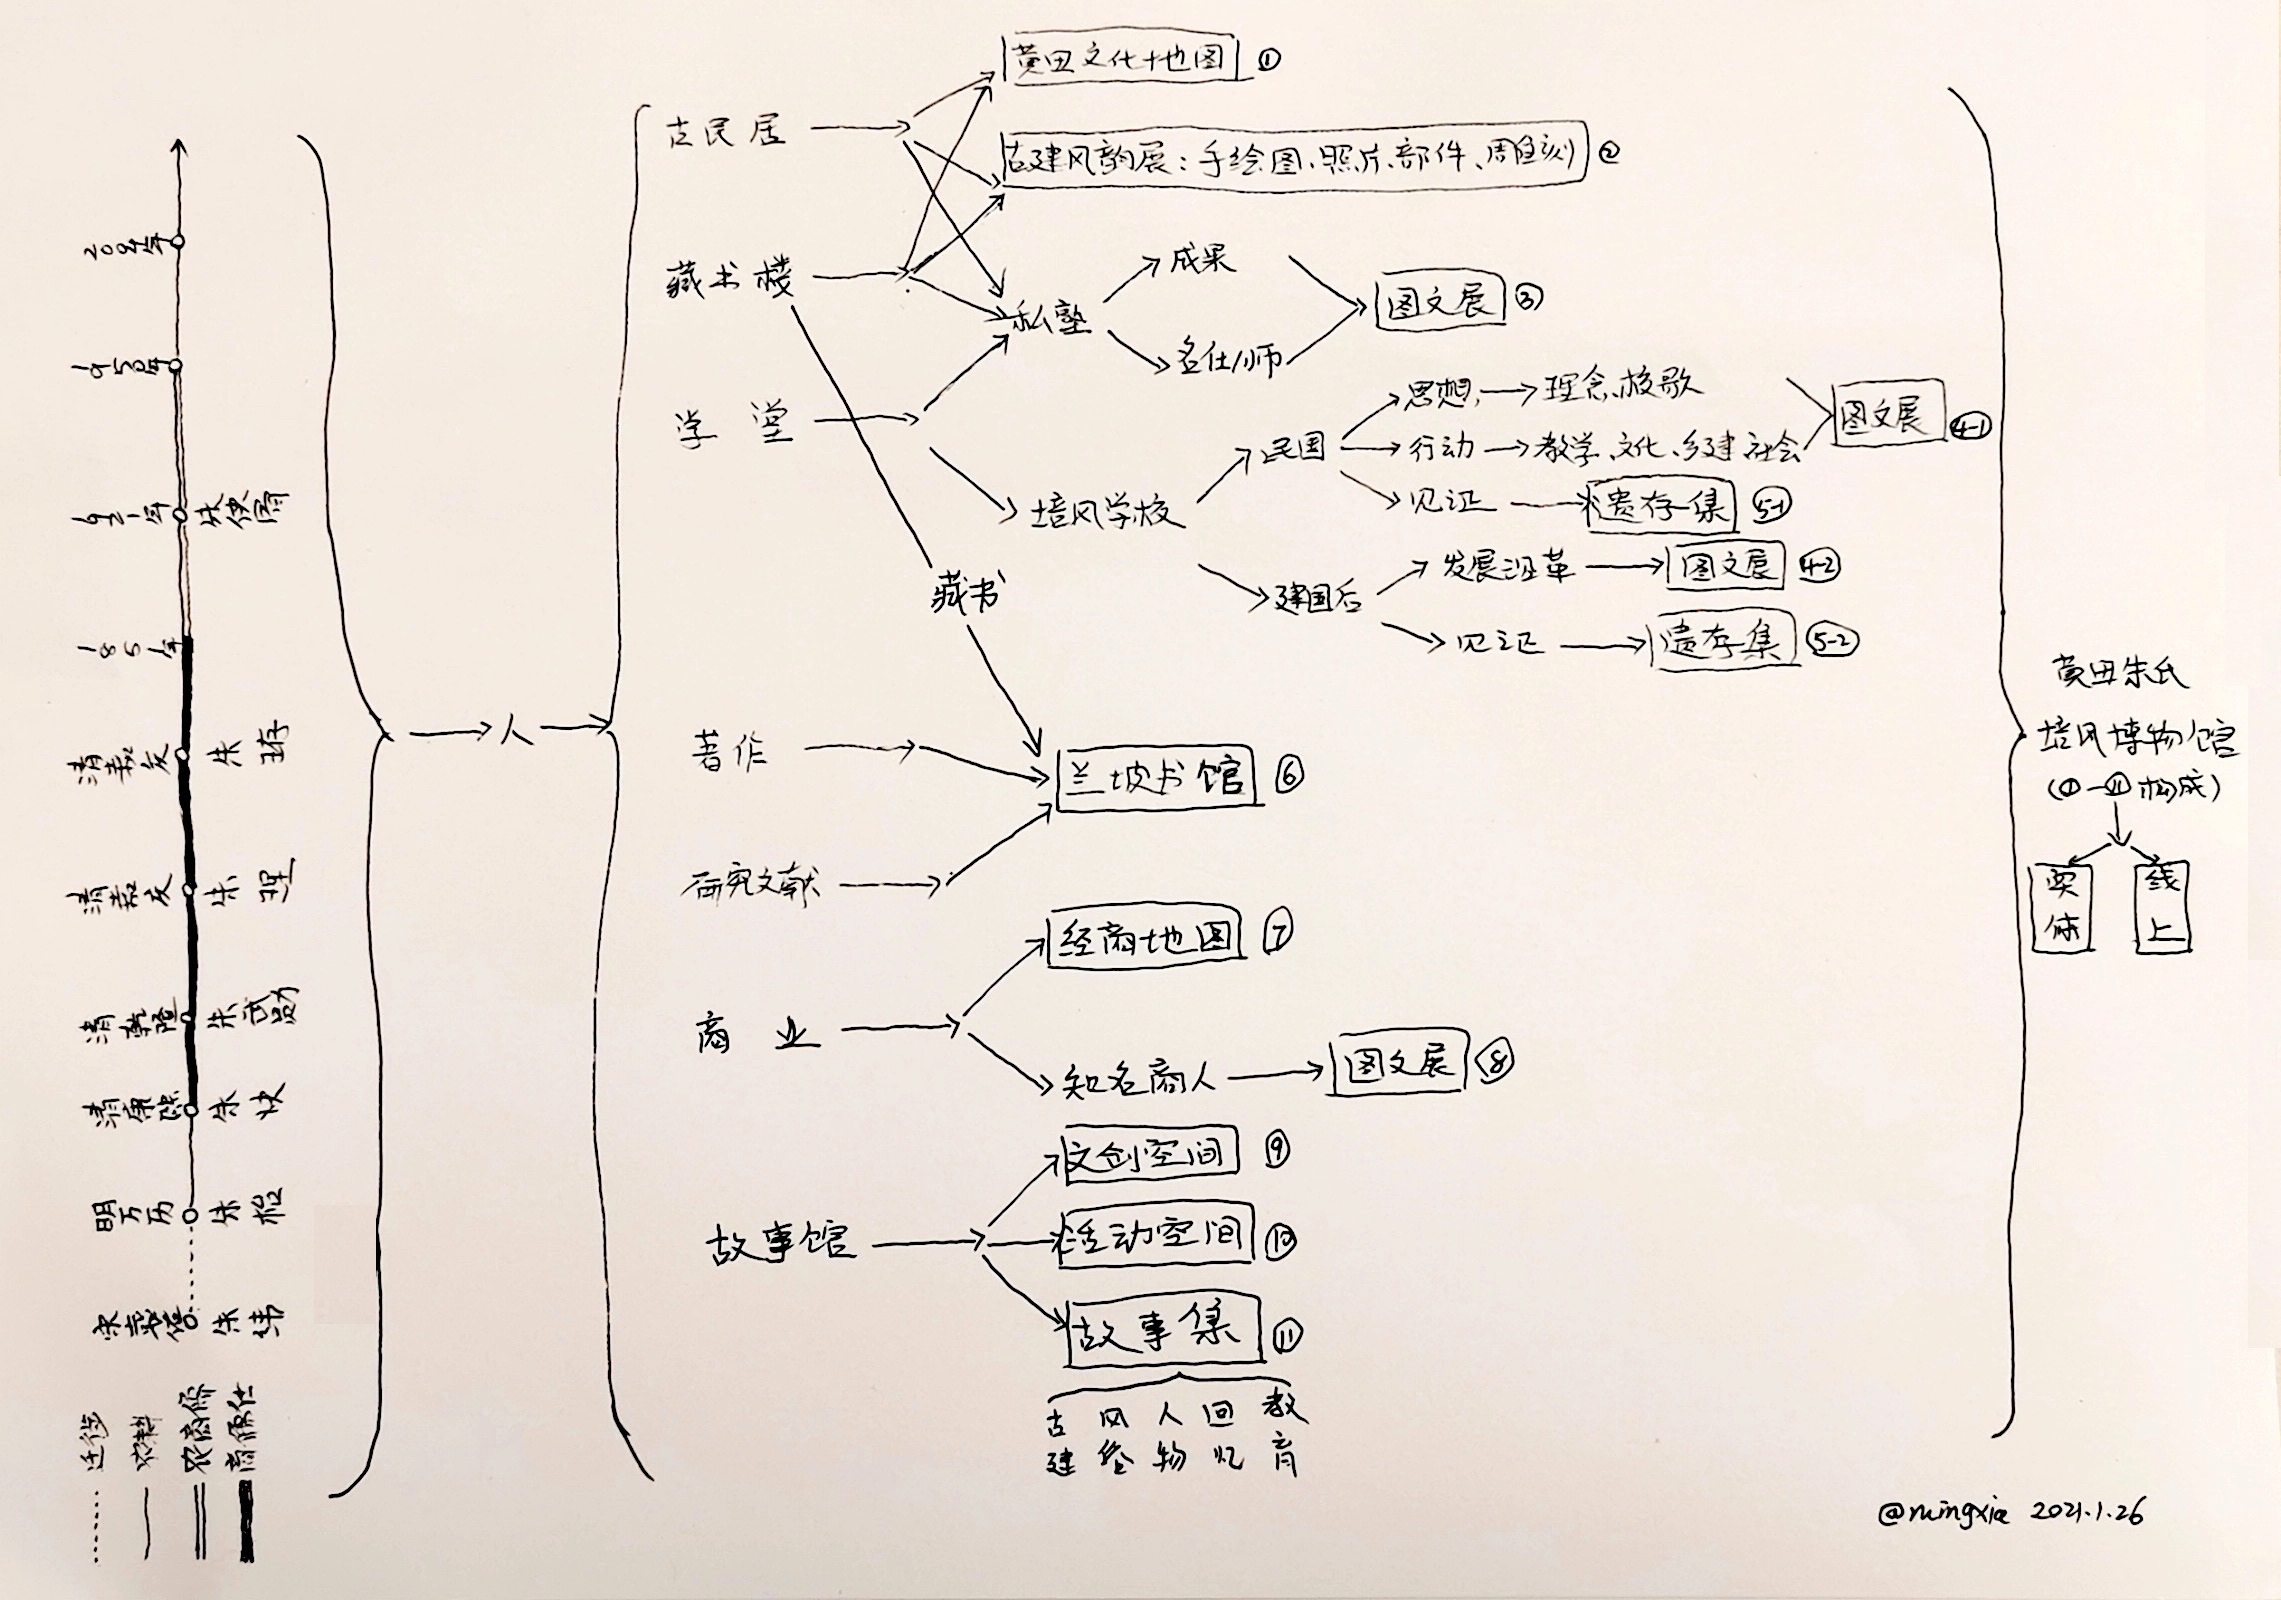 黄田文化地图 ①
古民居
古建风韵展:手绘图、照片、部件、雕刻 ②
藏书楼
私塾
成果
名仕/师
图文展 ③
学堂
培风学校
民国
思想 理念、校歌
行动 教学、文化、乡建、社会
图文展 4-1
见证 遗存集 5-1
建国后
发展沿革 图文展 4-2
见证 遗存集 5-2
藏书
著作
兰坡书馆 ⑥
研究文献
商业
经商地图 ⑦
知名商人 图文展 ⑧
故事馆
文创空间 ⑨
活动空间 ⑩
故事集 ⑪
古建
风俗
人物
回忆
教育
人
1950年
1921年
1851年
清嘉庆 朱珔
清嘉庆 朱理
清乾隆 朱武勋
清康熙
明万历
朱纬
迁徙
农耕
农商儒
商儒仕
黄田朱氏
培风博物馆
(①—⑪构成)
实体
线上
@mingxia 2021.1.26